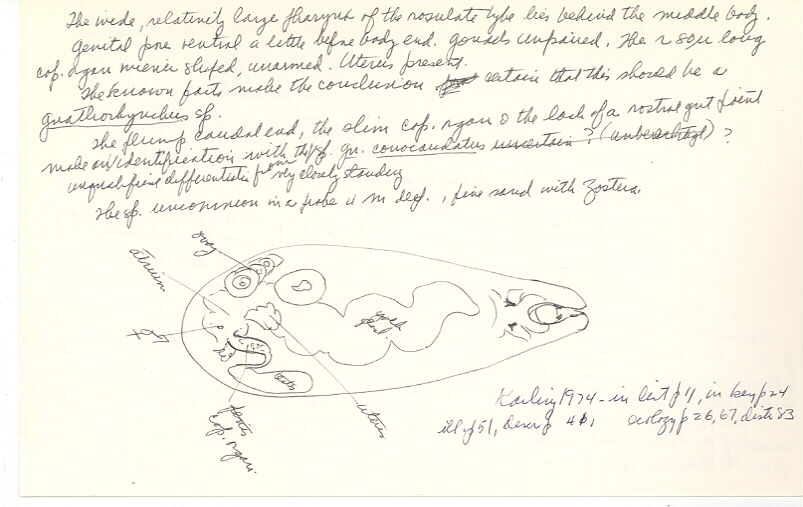 The wide, relatively large pharynx of the rosulate type lies behind the middle body.
Genital pore ventral a little before body end. gonads unpaired. The r 80µ long
cop. organ shaped, unarmed. Uterus present.
The known parts make the conclusion certain that this should be a
gnathorhynchus sp.
The plump caudal end, the slim cop. organ & the lack of a rostral gut
make an identification with the sp. gn. conocaudatus uncertain ? ?
differentiation from very closely standing
The sp. uncommon in a probe 4 m deep., fine sand with Zostera.
ovary
atrium
yolk
gland.
testis
penis
cop. organ.
uterus
Karling 1974 - in list p 4, in key p 24
ill. p 51, descr p 40, ecology p 26, 67, distr 83